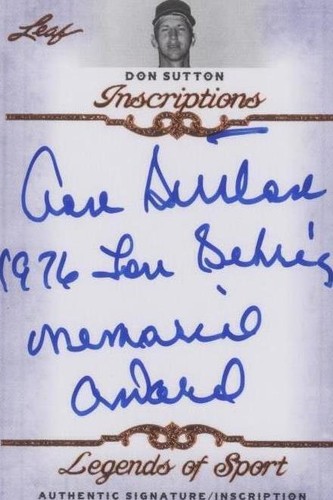 Leaf
DON SUTTON
Inscriptions
Don Sutton
1976 Lou Gehrig
Memorial
Award
Legends of Sport
AUTHENTIC SIGNATURE/INSCRIPTION